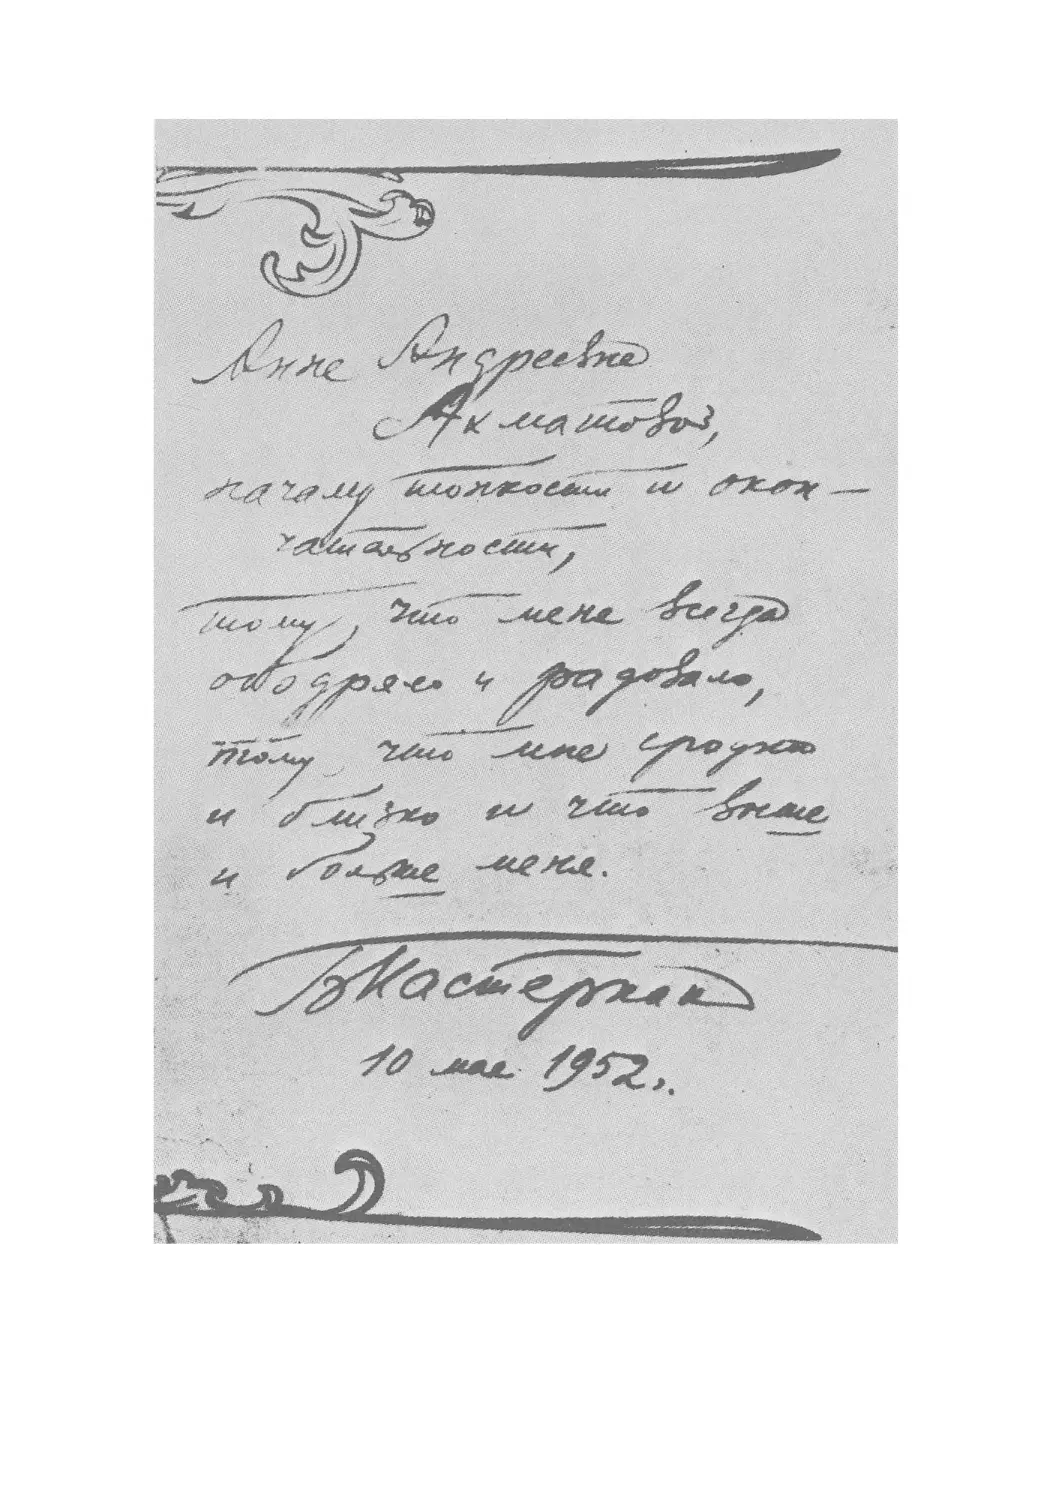 Анне Андреевне
Ахматовой,
началу тонкости и окон-
чательности,
тому, что меня всегда
ободряло и радовало,
тому, что мне сродно
и близко и что выше
и больше меня.
БПастернак
10 мая 1952г.